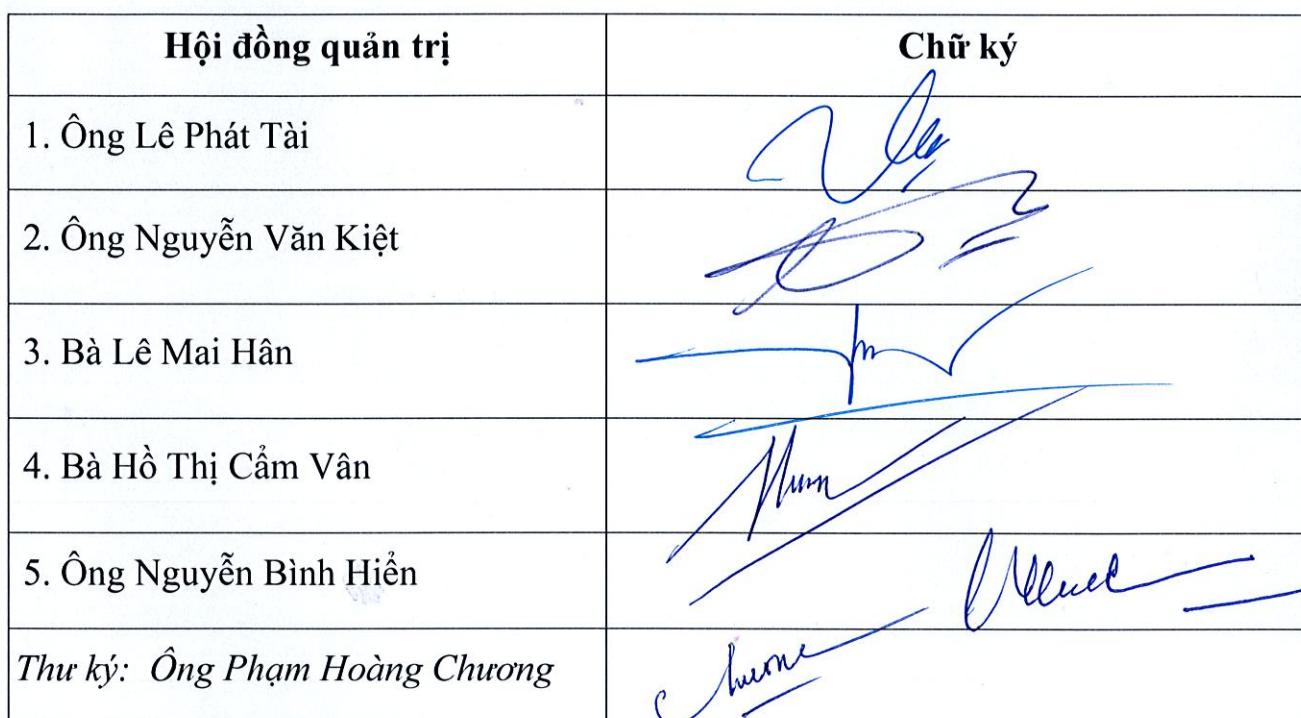 Hội đồng quản trị Chữ ký
1. Ông Lê Phát Tài
2. Ông Nguyễn Văn Kiệt
3. Bà Lê Mai Hân
4. Bà Hồ Thị Cẩm Vân
5. Ông Nguyễn Bình Hiển
Thư ký: Ông Phạm Hoàng Chương